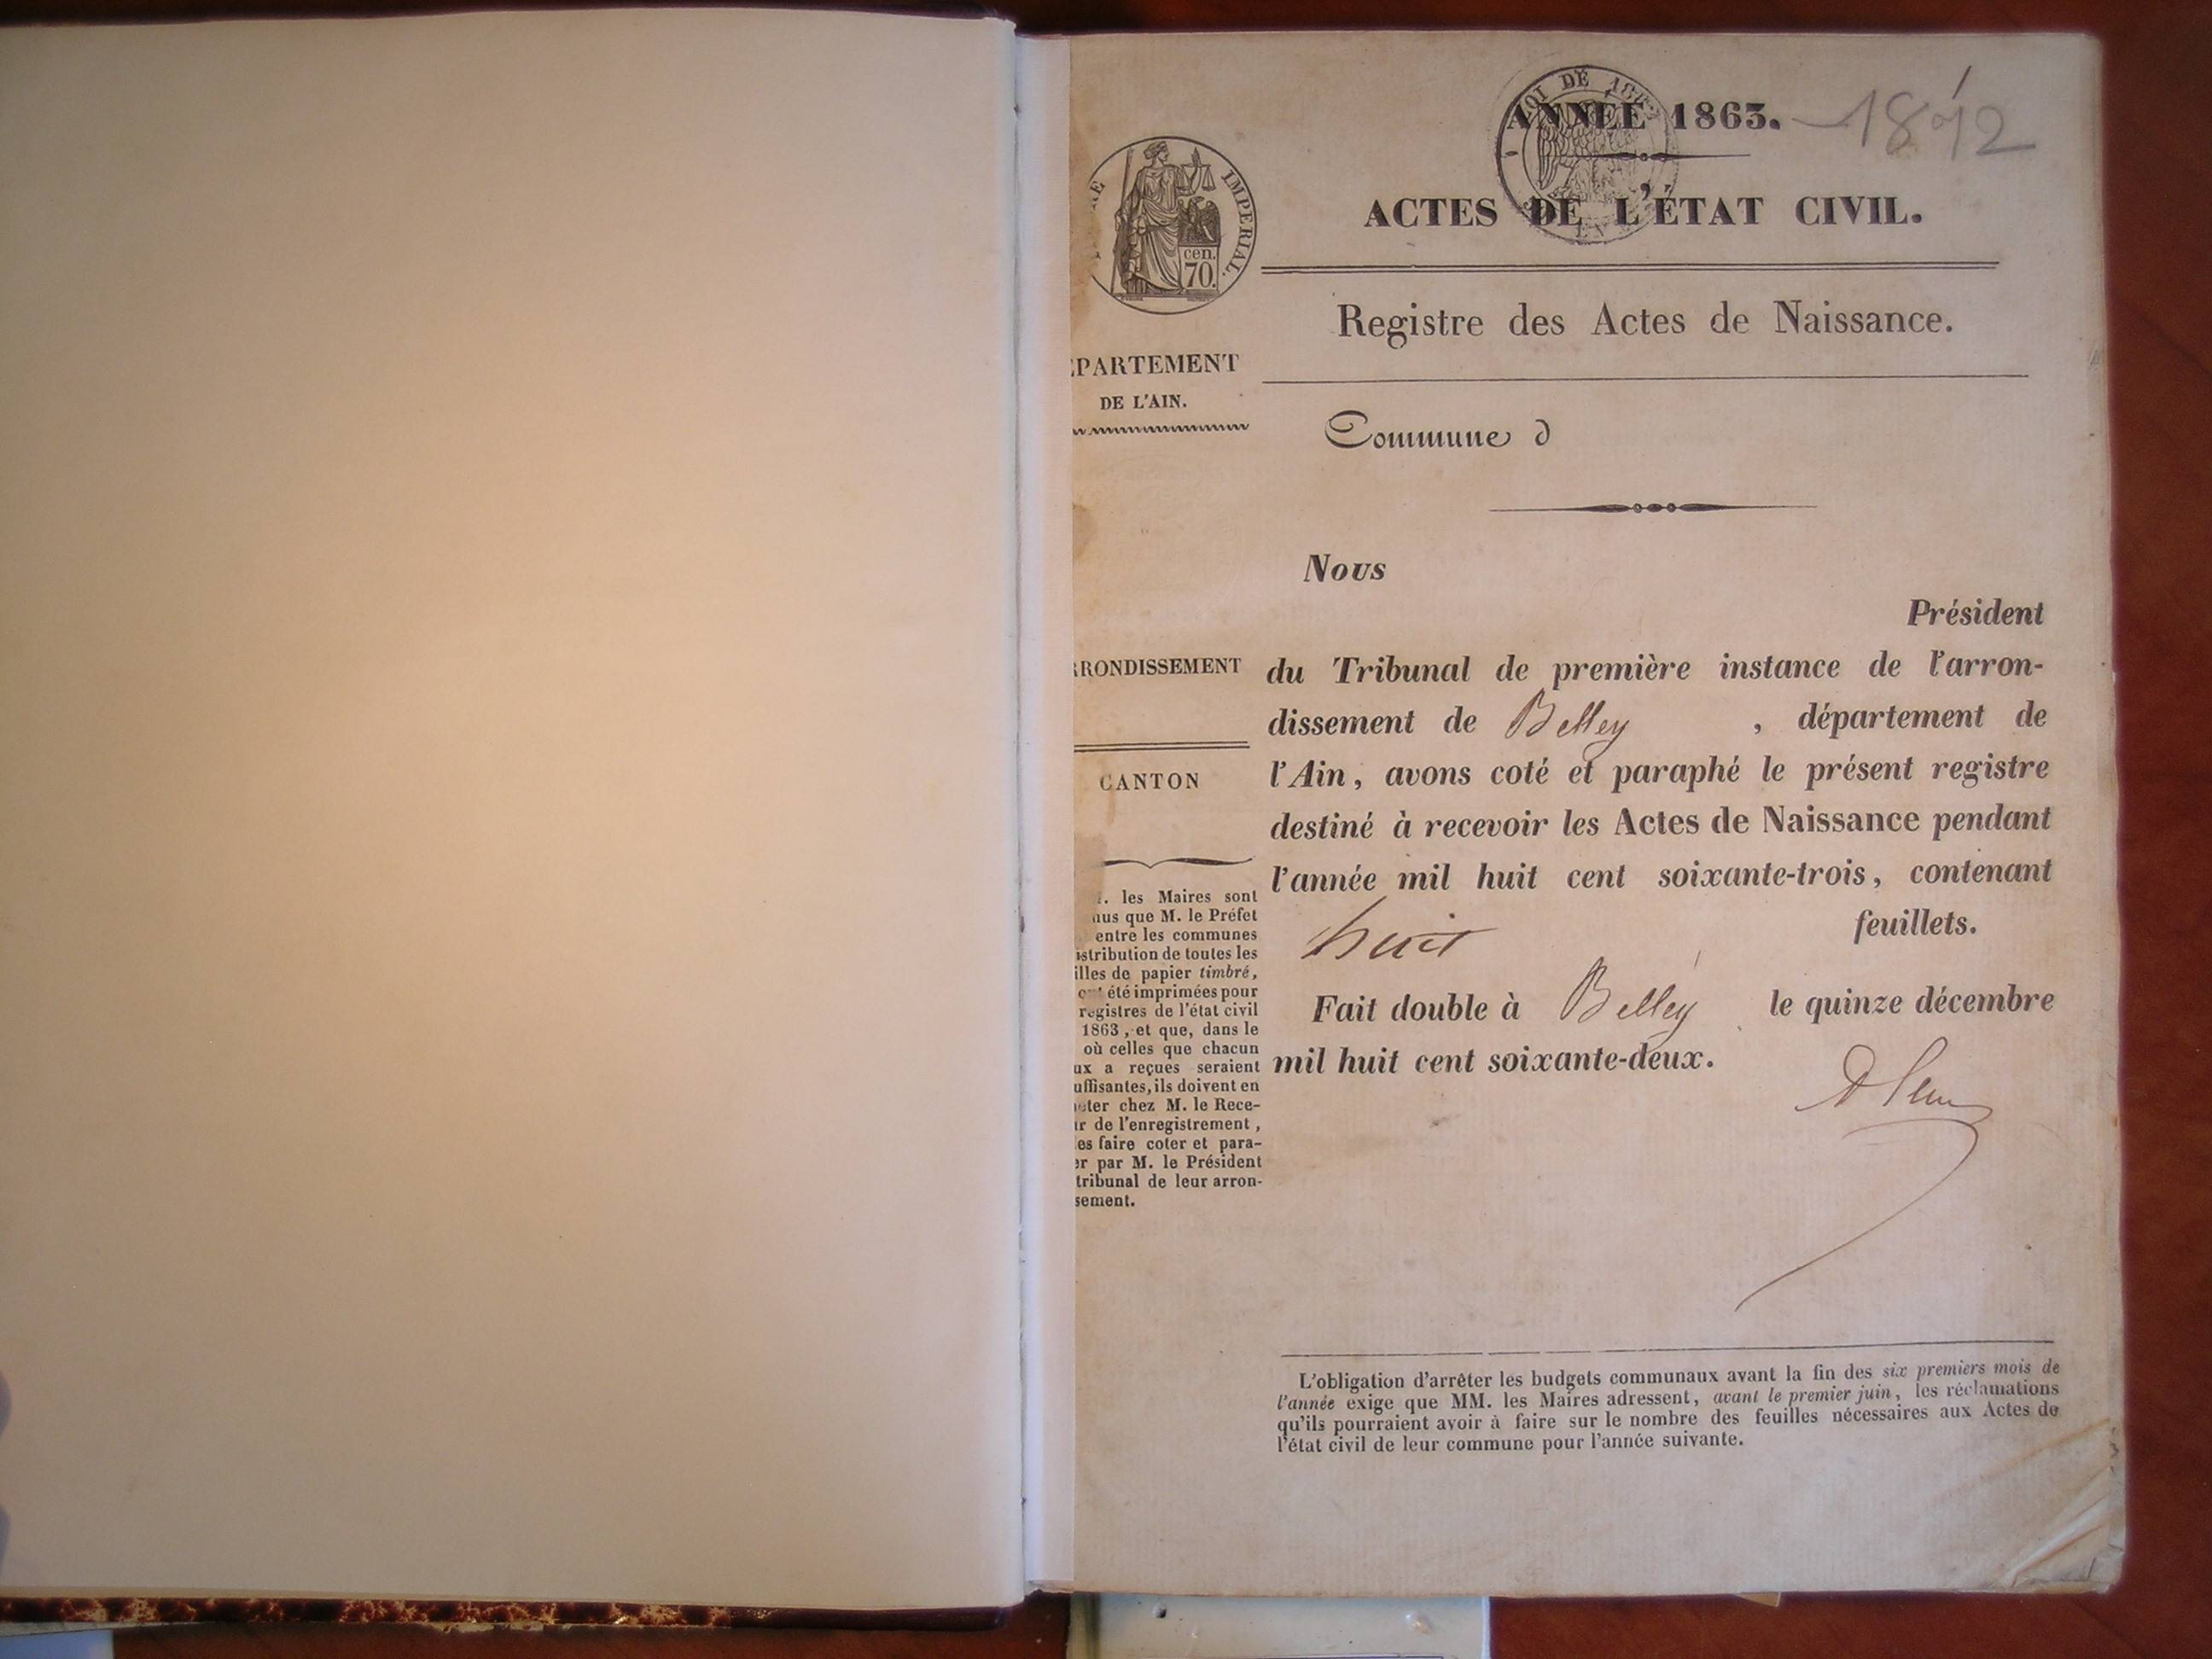 ANNÉE 1863. - 1872
LOI DE
ACTES DE L'ÉTAT CIVIL.
IMPERIAL.
cen.
70.
Registre des Actes de Naissance.
ÉPARTEMENT
DE L'AIN.
Commune d
Nous
Président
RRONDISSEMENT
du Tribunal de première instance de l'arron-
dissement de Belley , département de
l'Ain, avons coté et paraphé le présent registre
destiné à recevoir les Actes de Naissance pendant
l'année mil huit cent soixante-trois, contenant
huit feuillets.
Fait double à Belley le quinze décembre
mil huit cent soixante-deux.
CANTON
. les Maires sont
nus que M. le Préfet
entre les communes
istribution de toutes les
illes de papier timbré,
ont été imprimées pour
registres de l'état civil
1863, et que, dans le
où celles que chacun
ux a reçues seraient
uffisantes, ils doivent en
eter chez M. le Rece-
ur de l'enregistrement,
les faire coter et para-
er par M. le Président
tribunal de leur arron-
sement.
L'obligation d'arrêter les budgets communaux avant la fin des six premiers mois de
l'année exige que MM. les Maires adressent, avant le premier juin, les réclamations
qu'ils pourraient avoir à faire sur le nombre des feuilles nécessaires aux Actes de
l'état civil de leur commune pour l'année suivante.